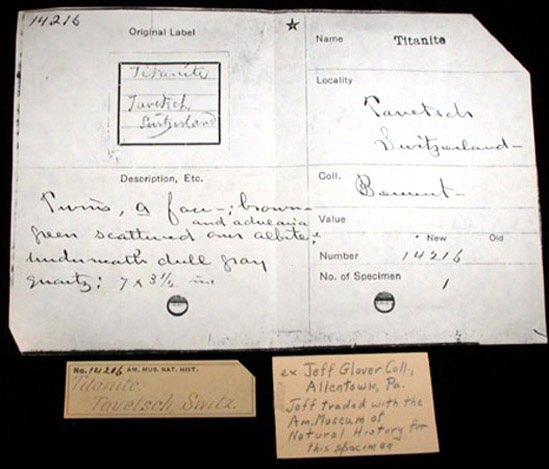 14216
Original Label
Titanite
Tavetsch
Switzerland
Description, Etc.
Twins, a face; brown-
and adularia
green scattered over albite,
underneath dull gray
quartz: 7 x 3½ in.
Name Titanite
Locality
Tavetsch
Switzerland-
Coll. Bement-
Value
New Old
Number 14216
No. of Specimen 1
No. 14216 AM. MUS. NAT. HIST.
Titanite
Tavetsch, Switz.
ex Jeff Glover Coll.,
Allentown, Pa.
Jeff traded with the
Am. Museum of
Natural History for
this specimen